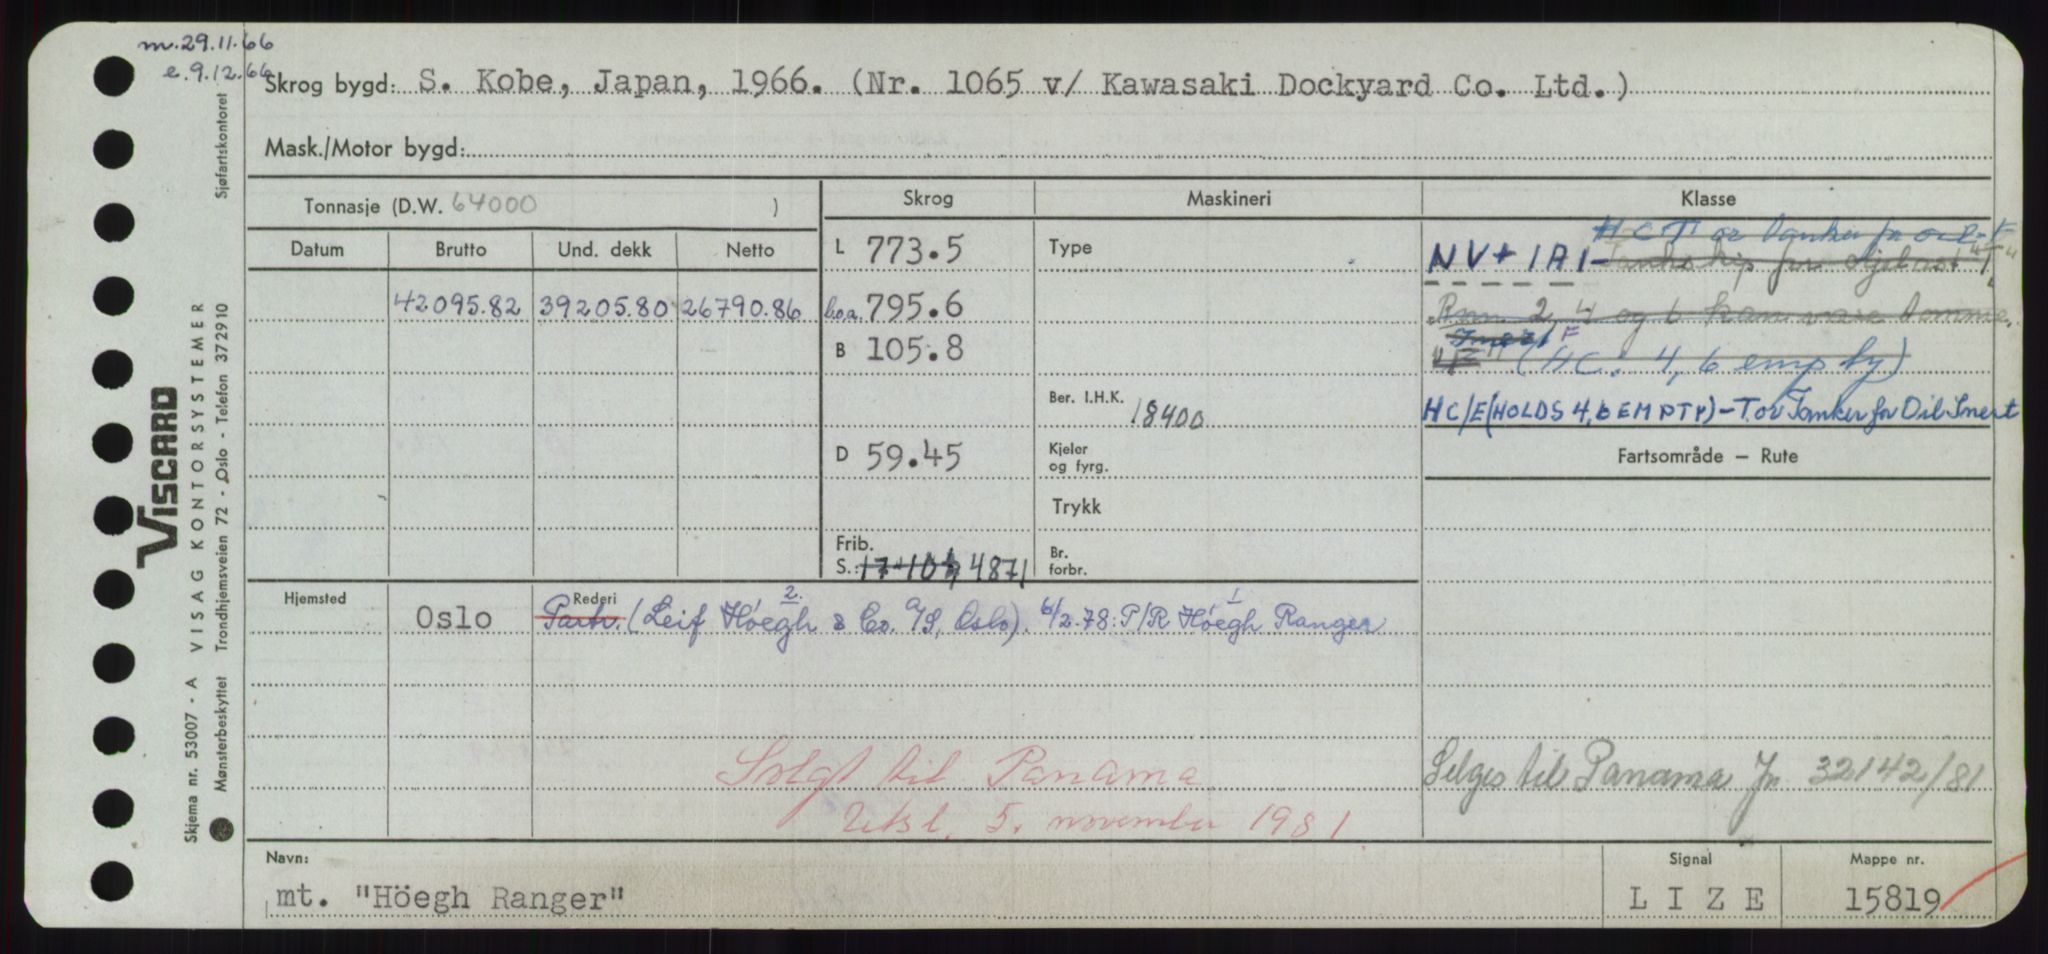 m. 29.11.66
e. 9.12.66
Skrog bygd: S. Kobe, Japan, 1966. (Nr. 1065 v/ Kawasaki Dockyard Co. Ltd.)
Mask./Motor bygd:
Tonnasje (D.W. 64000 )
Skrog
Maskineri
Klasse
Datum
Brutto
Und. dekk
Netto
L 773.5
Type
HCT or Tanker for
NV+1A1- Tankskip for oljelast "F"
42095.82 39205.80 26790.86
l.o.a. 795.6
Rom 2, 4 og 6 kan være tomme.
Inert F
B 105.8
"F" (HC. 4, 6 empty)
Ber. I.H.K. 18400
HC/E(HOLDS 4,6 EMPTY)-T. or Tanker for Oil Inert
D 59.45
Kjeler
og fyrg.
Fartsområde – Rute
Trykk
Frib.
S.: 17-10½ 4871
Br.
forbr.
Hjemsted
Oslo
Rederi
Partr. (Leif Höegh & Co. A/S, Oslo). 6/2.78: P/R Höegh Ranger
2.
1
Solgt til Panama
Utsl. 5. november 1981
Selges til Panama Jn 32142/81
Navn:
mt. "Höegh Ranger"
Signal
LIZE
Mappe nr.
15819
VISCARD
Skjema nr. 53007 - A VISAG KONTORSYSTEMER Sjøfartskontoret
Mønsterbeskyttet Trondhjemsveien 72 - Oslo - Telefon 372910